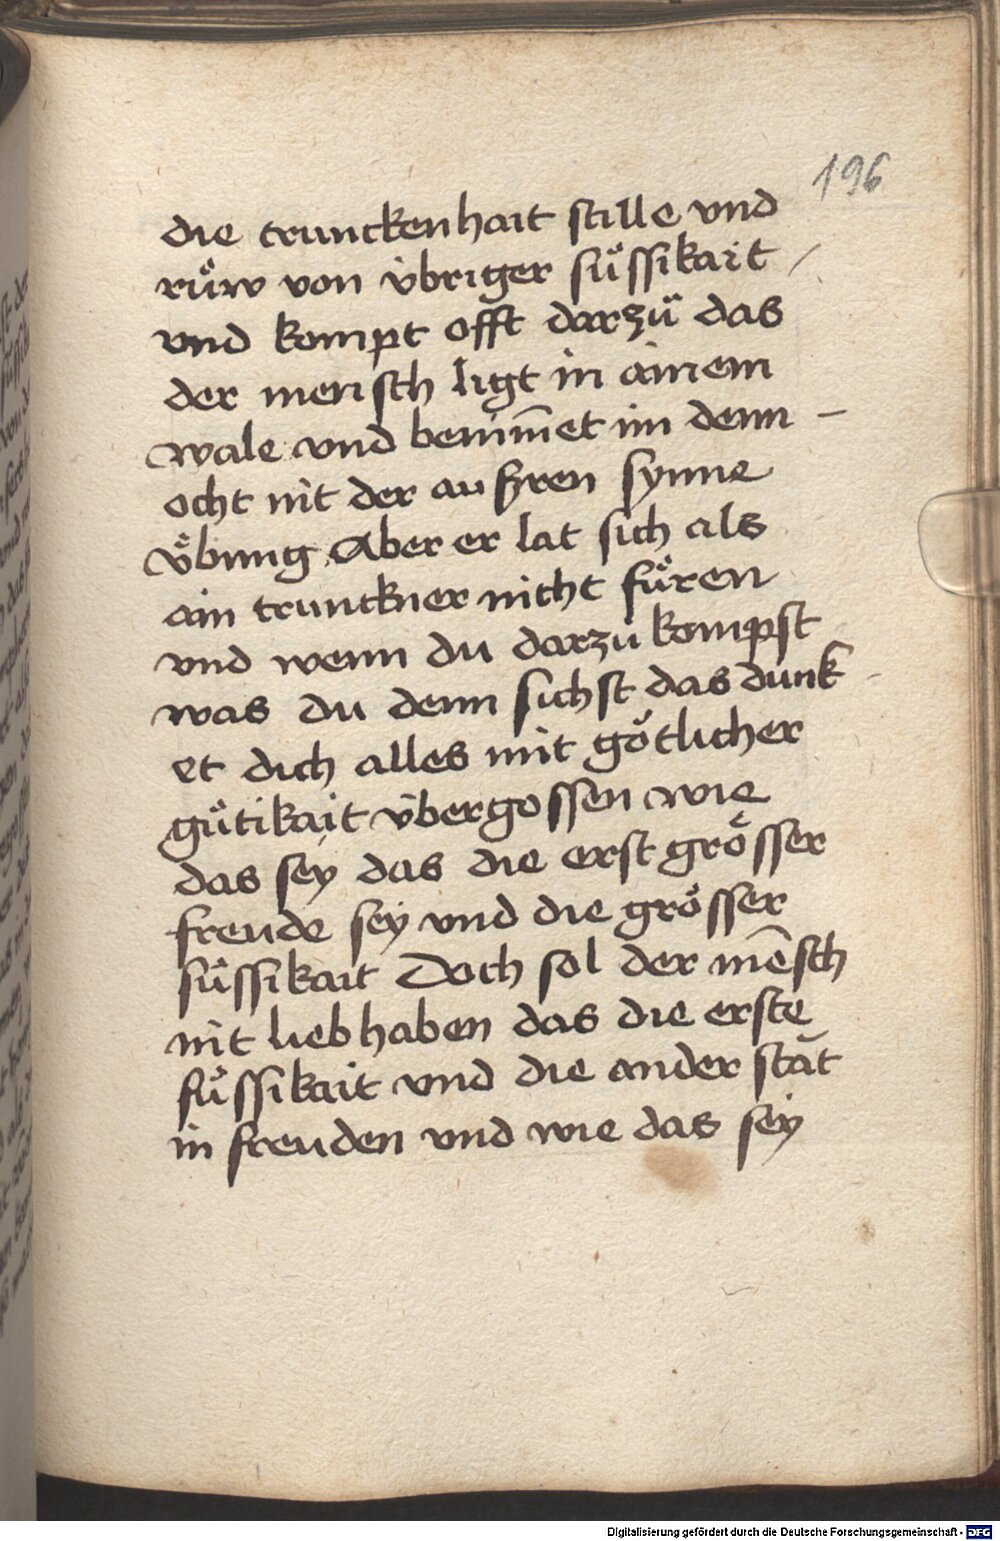 196
die trunckenhait stille vnd
ruͦw von v̈briger suͤssikait /
vnd kompt offt darzuͦ das
der mensch ligt in ainem
wale vnd benim̄et im denn -
ocht nit der aussren synne
v̈bung Aber er lat sich als
ain trunckner nicht fuͤren
vnd wenn du darzu kompst
was du denn sichst das dunk -
et dich alles mit goͤtlicher
guͤtikait v̈bergossen wie
das sey das die erst groͤsser
freude sey vnd die groͤsser
suͤssikait Doch sol der mēsch
nit liebhaben das die erste
suͤssikait vnd die ander stāt
in freuden vnd wie das sey
Digitalisierung gefördert durch die Deutsche Forschungsgemeinschaft - DFG